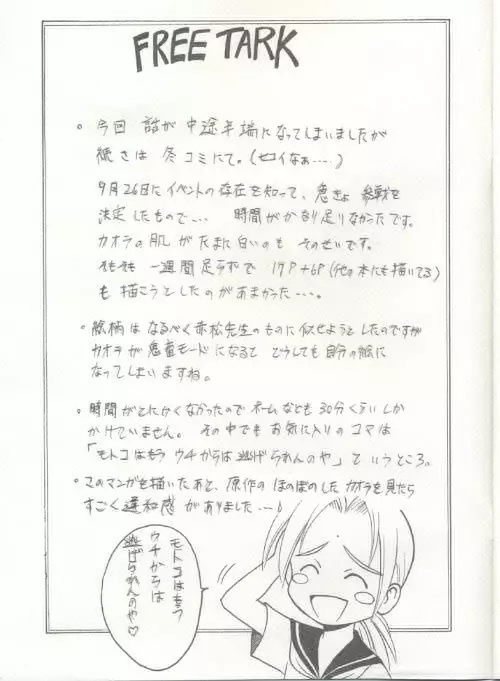 FREE TARK
。今回 話が中途半端になってしまいましたが
続きは 冬コミにて。(セコイなぁ…‥)
9月26日にイベントの存在を知って、急きょ 参戦を
決定したもので… 時間がかなり足りなかたです。
カオラの肌がたまに白いのも そのせいです。
そもそも 一週間足らずで 17P+6P(他の本にも描いてる)
も描こうとしたのがあまかった…。
。絵柄は なるべく赤松先生のものに似せようとしたのですが
カオラが鬼畜モードになると どうしても自分の絵に
なってしまいますね。
。時間がとにかくなかったので ネームなども 30分くらいしか
かけていません。 その中でもお気に入りのコマは
「モトコはもう ウチからは逃げられんのや」というところ。
。このマンガを描いたあと、原作のほのぼのしたカオラを見たら
すごく違和感がありました…♪
モトコはもう
ウチからは
逃げられんのや♡